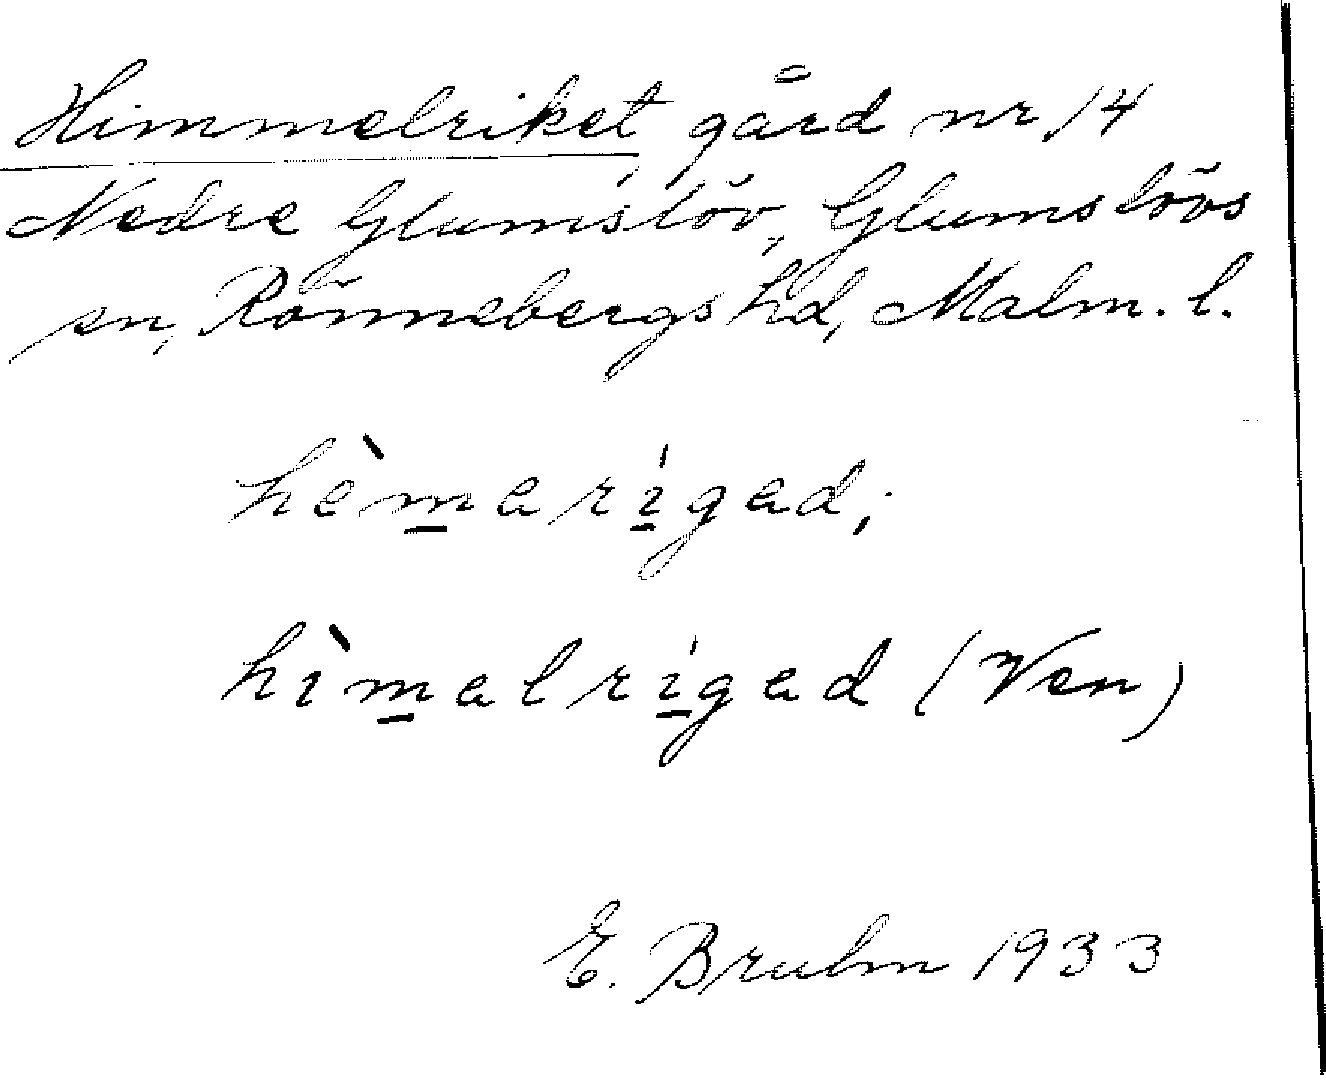 Himmelriket, gård nr 14
Nedre Glumslöv, Glumslövs
sn, Rönnebergs hd, Malm. l.
hèmarígad;
hìmalrígad (Ven)
E. Bruhn 1933